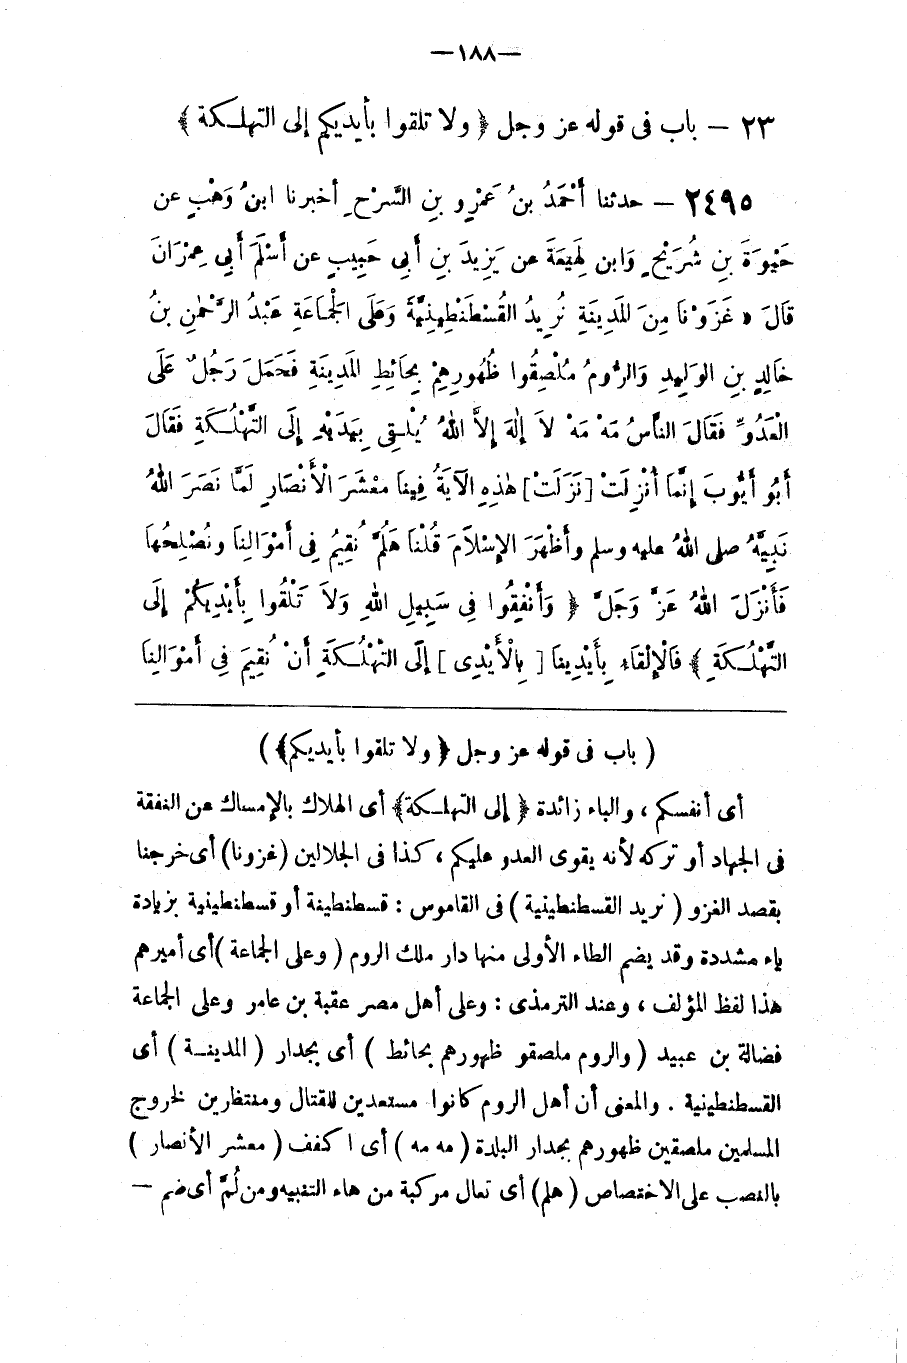 — ١٨٨ —
٢٣ – باب فى قوله عز وجل ﴿ ولا تلقوا بأيديكم إلى التهلكة ﴾
٢٤٩٥ – حدثنا أَحْمَدُ بنُ عَمْرِو بنِ السَّرْحِ أخبرنا ابنُ وَهْبٍ عن
حَيْوَةَ بنِ شُرَيْحٍ وَابن لَهِيعَةَ عن يَزِيدَ بنِ أَبى حَبِيبٍ عن أَسْلَمَ أَبى عِمْرَانَ
قالَ « غَزَوْنَا مِنَ المَدِينَةِ نُرِيدُ القُسْطَنْطِينِيَّةَ وَعَلَى الْجَمَاعَةِ عَبْدُ الرَّحْمٰنِ بنُ
خَالِدِ بنِ الوَلِيدِ وَالرُّومُ مُلْصِقُوا ظُهُورِهِمْ بِحَائِطِ المَدِينَةِ فَحَمَلَ رَجُلٌ عَلَى
الْعَدُوِّ فَقَالَ النَّاسُ مَهْ مَهْ لاَ إِلٰهَ إِلاَّ اللهُ يُلْقِى بِيَدَيْهِ إِلَى التَّهْلُكَةِ فَقَالَ
أَبُو أَيُّوبَ إِنَّمَا أُنْزِلَتْ [نَزَلَتْ] هٰذِهِ الآيَةُ فِينَا مَعْشَرَ الْأَنْصَارِ لَمَّا نَصَرَ اللهُ
نَبِيَّهُ صلى اللهُ عليه وسلم وأَظْهَرَ الإِسْلاَمَ قُلْنَا هَلُمَّ نُقِيمُ فى أَمْوَالِنَا ونُصْلِحُهَا
فَأَنْزَلَ اللهُ عَزَّ وَجَلَّ ﴿ وَأَنْفِقُوا فى سَبِيلِ اللهِ وَلاَ تَلْقُوا بِأَيْدِيكُمْ إِلَى
التَّهْلُكَةِ ﴾ فَالْإِلْقَاء بِأَيْدِينَا [ بِالْأَيْدِى ] إِلَى التَّهْلُكَةِ أَنْ نُقِيمَ فى أَمْوَالِنَا
( باب فى قوله عز وجل ﴿ ولا تلقوا بأيديكم﴾ )
أى أنفسكم ، والباء زائدة ﴿ إلى التهلكة﴾ أى الهلاك بالإمساك عن النفقة
فى الجهاد أو تركه لأنه يقوى العدو عليكم ، كذا فى الجلالين (غزونا) أى خرجنا
بقصد الغزو ( نريد القسطنطينية ) فى القاموس : قسطنطينة أو قسطنطينية بزيادة
ياء مشددة وقد يضم الطاء الأولى منها دار ملك الروم ( وعلى الجماعة )أى أميرهم
هذا لفظ المؤلف ، وعند الترمذى : وعلى أهل مصر عقبة بن عامر وعلى الجماعة
فضالة بن عبيد ( والروم ملصقو ظهورهم بحائط ) أى بجدار ( المدينة ) أى
القسطنطينية . والمعنى أن أهل الروم كانوا مستعدين للقتال ومنتظرين لخروج
المسلمين ملصقين ظهورهم بجدار البلدة ( مه مه ) أى اكفف ( معشر الأنصار )
بالنصب على الاختصاص ( هلم) أى تعال مركبة من هاء التنبيه ومن لُمَّ أى ضم –